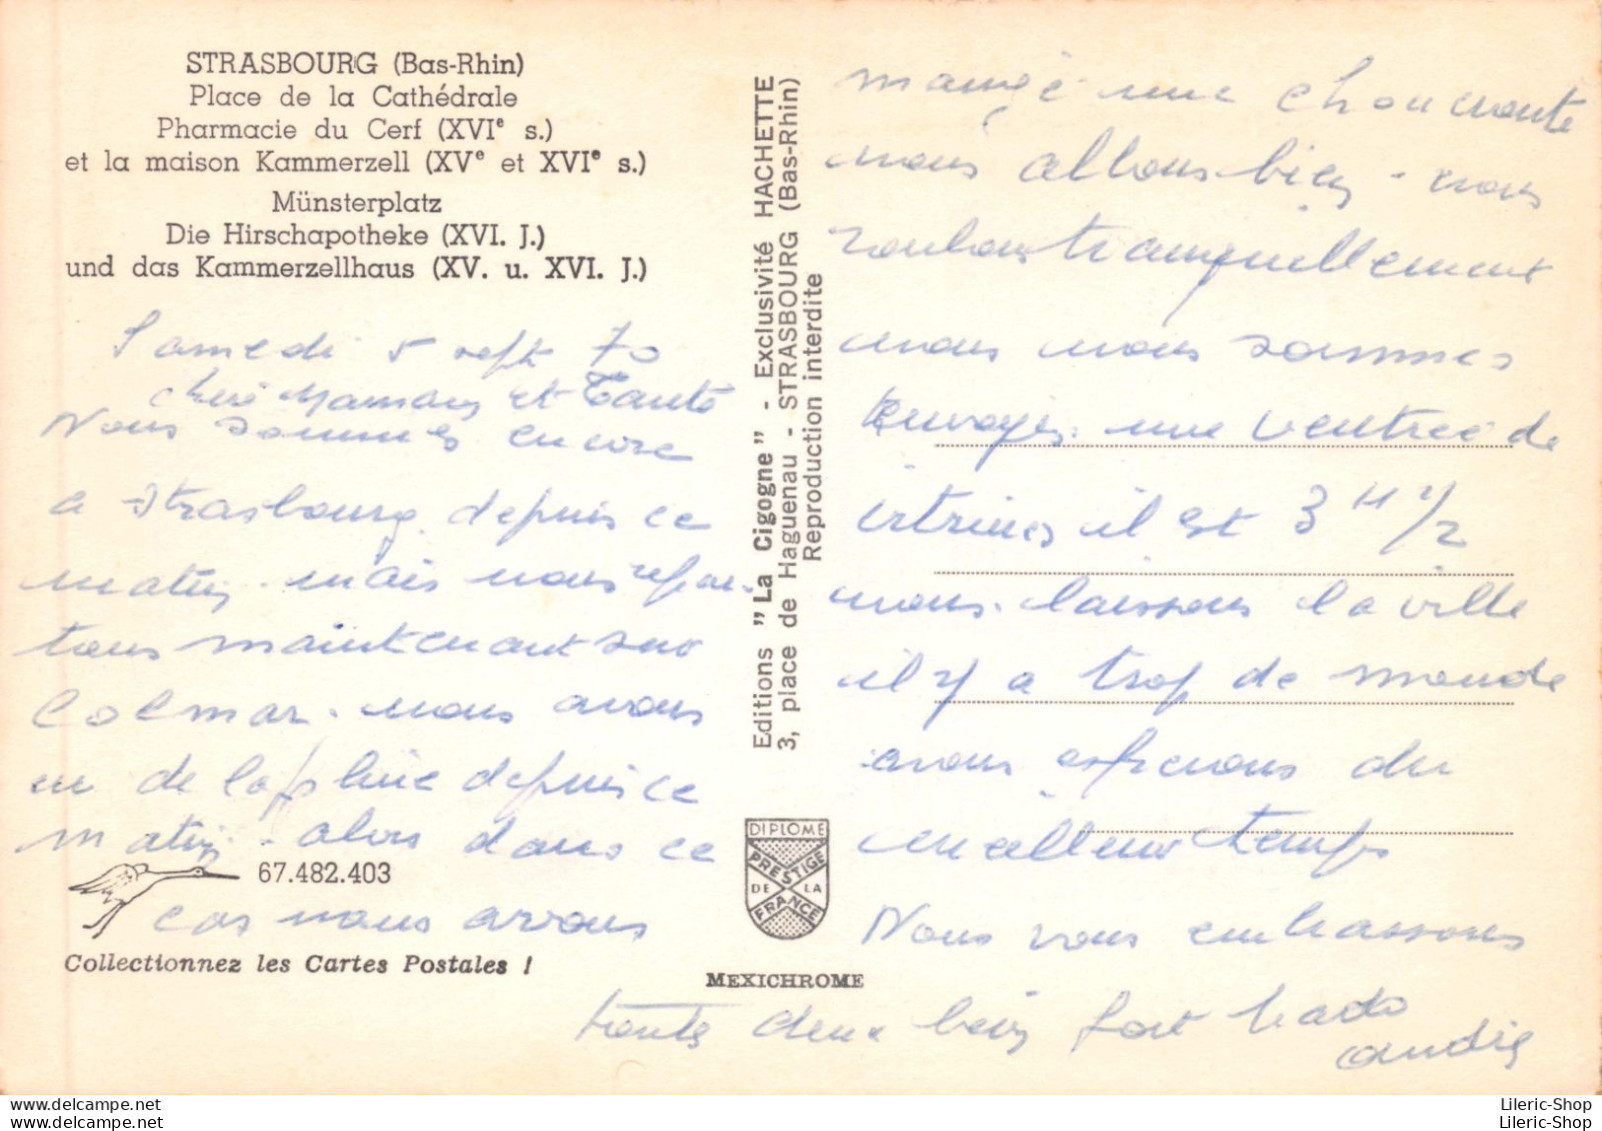 STRASBOURG (Bas-Rhin)
Place de la Cathédrale
Pharmacie du Cerf (XVIe s.)
et la maison Kammerzell (XVe et XVIe s.)
Münsterplatz
Die Hirschapotheke (XVI. J.)
und das Kammerzellhaus (XV. u. XVI. J.)
Samedi 5 sept 70
chere Maman et Tante
Nous sommes encore
a Strasbourg depuis ce
matin. mais nous repar-
tons maintenant sur
Colmar. nous avons
eu de la pluie depuis ce
matin. alors dans ce
cas nous avons
67.482.403
Collectionnez les Cartes Postales !
Editions "La Cigogne" - Exclusivité HACHETTE
3, place de Haguenau - STRASBOURG (Bas-Rhin)
Reproduction interdite
DIPLOME
PRESTIGE
DE LA
FRANCE
MEXICHROME
mangé une choucroute
nous allons bien - nous
roulons tranquillement
nous nous sommes
envoyés une ventrée de
il est 3 H 1/2
nous laissons la ville
il y a trop de monde
nous esperons du
meilleur temps
Nous vous embrassons
toute deux bien fort
andré
Lileric-Shop
Lileric-Shop